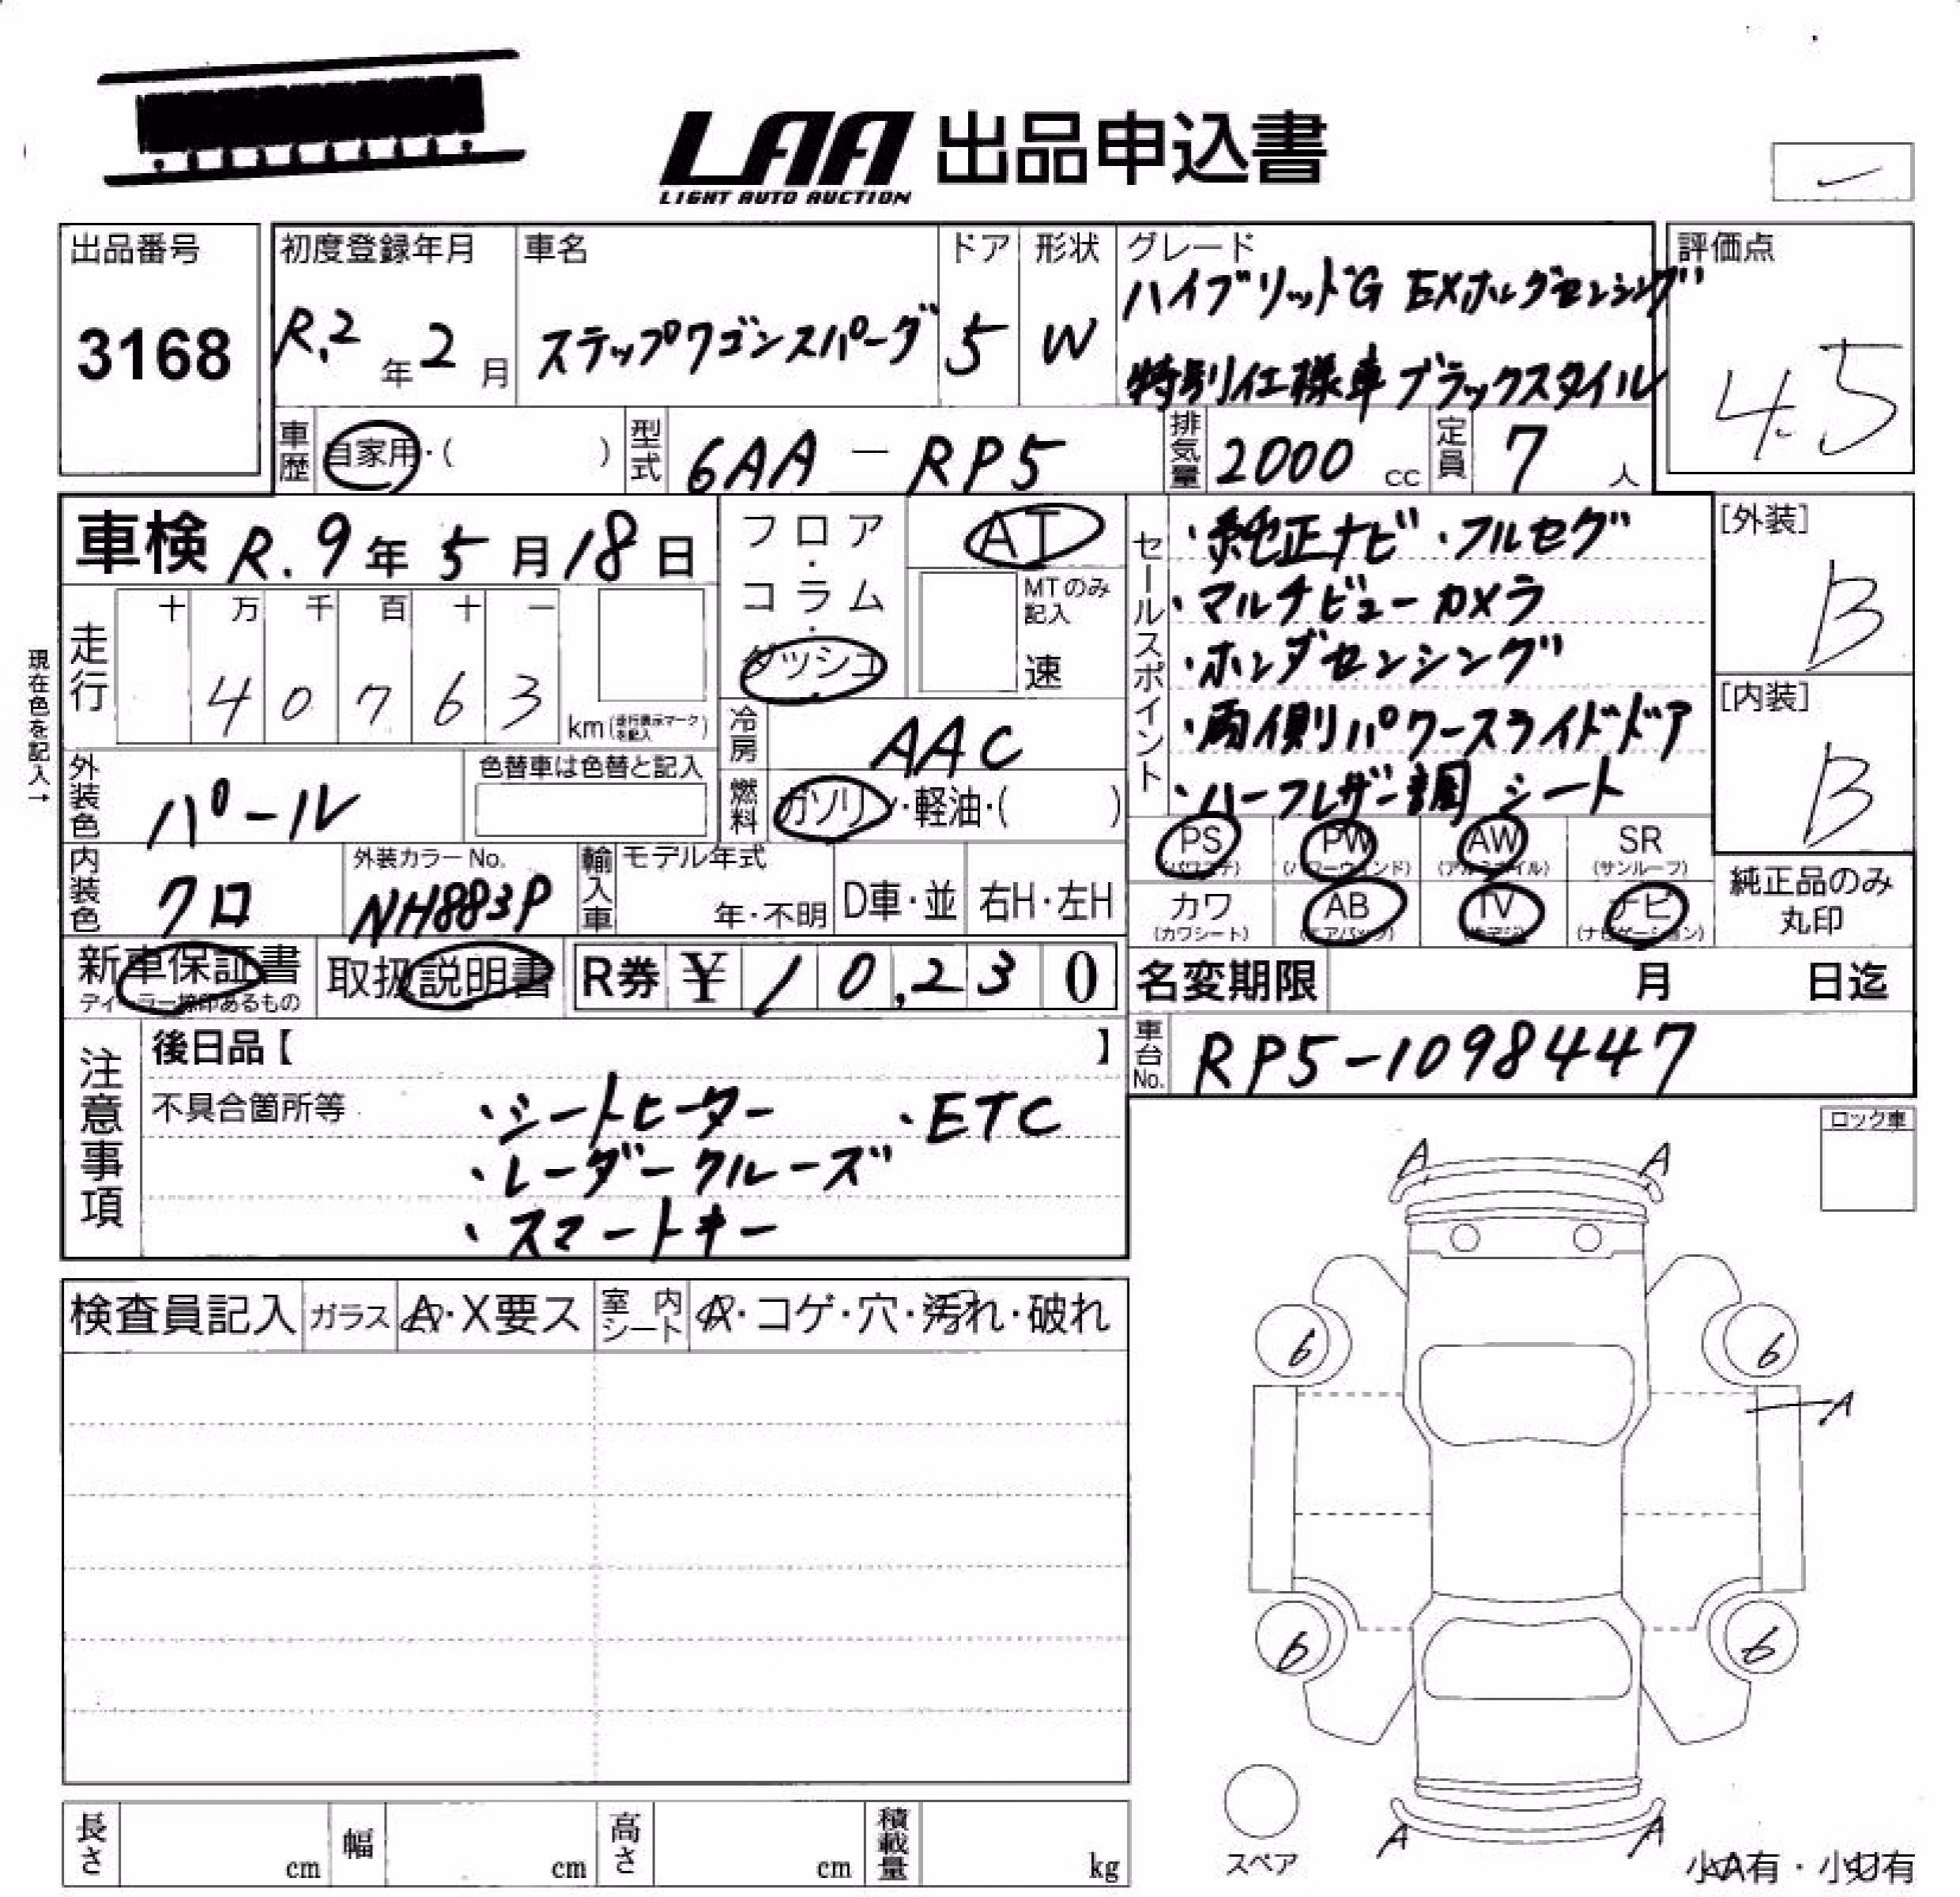 LAA 出品申込書
LIGHT AUTO AUCTION
出品番号
3168
初度登録年月
R.2年2月
車名
ステップワゴンスパーダ
ドア
5
形状
W
グレード
ハイブリッドG EXホンダセンシング
特別仕様車ブラックスタイル
評価点
4.5
車歴 自家用・( )
型式 6AA-RP5
排気量 2000cc
定員 7人
車検 R.9年5月18日
フロア・コラム・ダッシュ
AT
MTのみ記入
速
セールスポイント
・純正ナビ・フルセグ
・マルチビューカメラ
・ホンダセンシング
・両側パワースライドドア
・ハーフレザー調シート
[外装]
B
[内装]
B
現在色を記入→
走行 十 万 千 百 十 一
4 0 7 6 3
km(走行表示マークを記入)
冷房 AAC
外装色 パール
色替車は色替と記入
燃料 ガソリン・軽油・( )
PS (パワステ)
PW (パワーウィンド)
AW (アルミホイル)
SR (サンルーフ)
カワ (カワシート)
AB (エアバッグ)
TV
ナビ (ナビゲーション)
純正品のみ丸印
内装色 クロ
外装カラーNo. NH883P
輸入車 モデル年式 年・不明
D車・並
右H・左H
新車保証書
ディーラー捺印あるもの
取扱説明書
R券 ¥10,230
名変期限 月 日迄
車台No. RP5-1098447
注意事項
後日品【 】
不具合箇所等
・シートヒーター ・ETC
・レーダークルーズ
・スマートキー
ロック車
A A
検査員記入
ガラス A・X要ス
室内シート A・コゲ・穴・汚れ・破れ
6 6
A
6 6
A A
スペア
小A有・小U有
長さ cm
幅 cm
高さ cm
積載量 kg